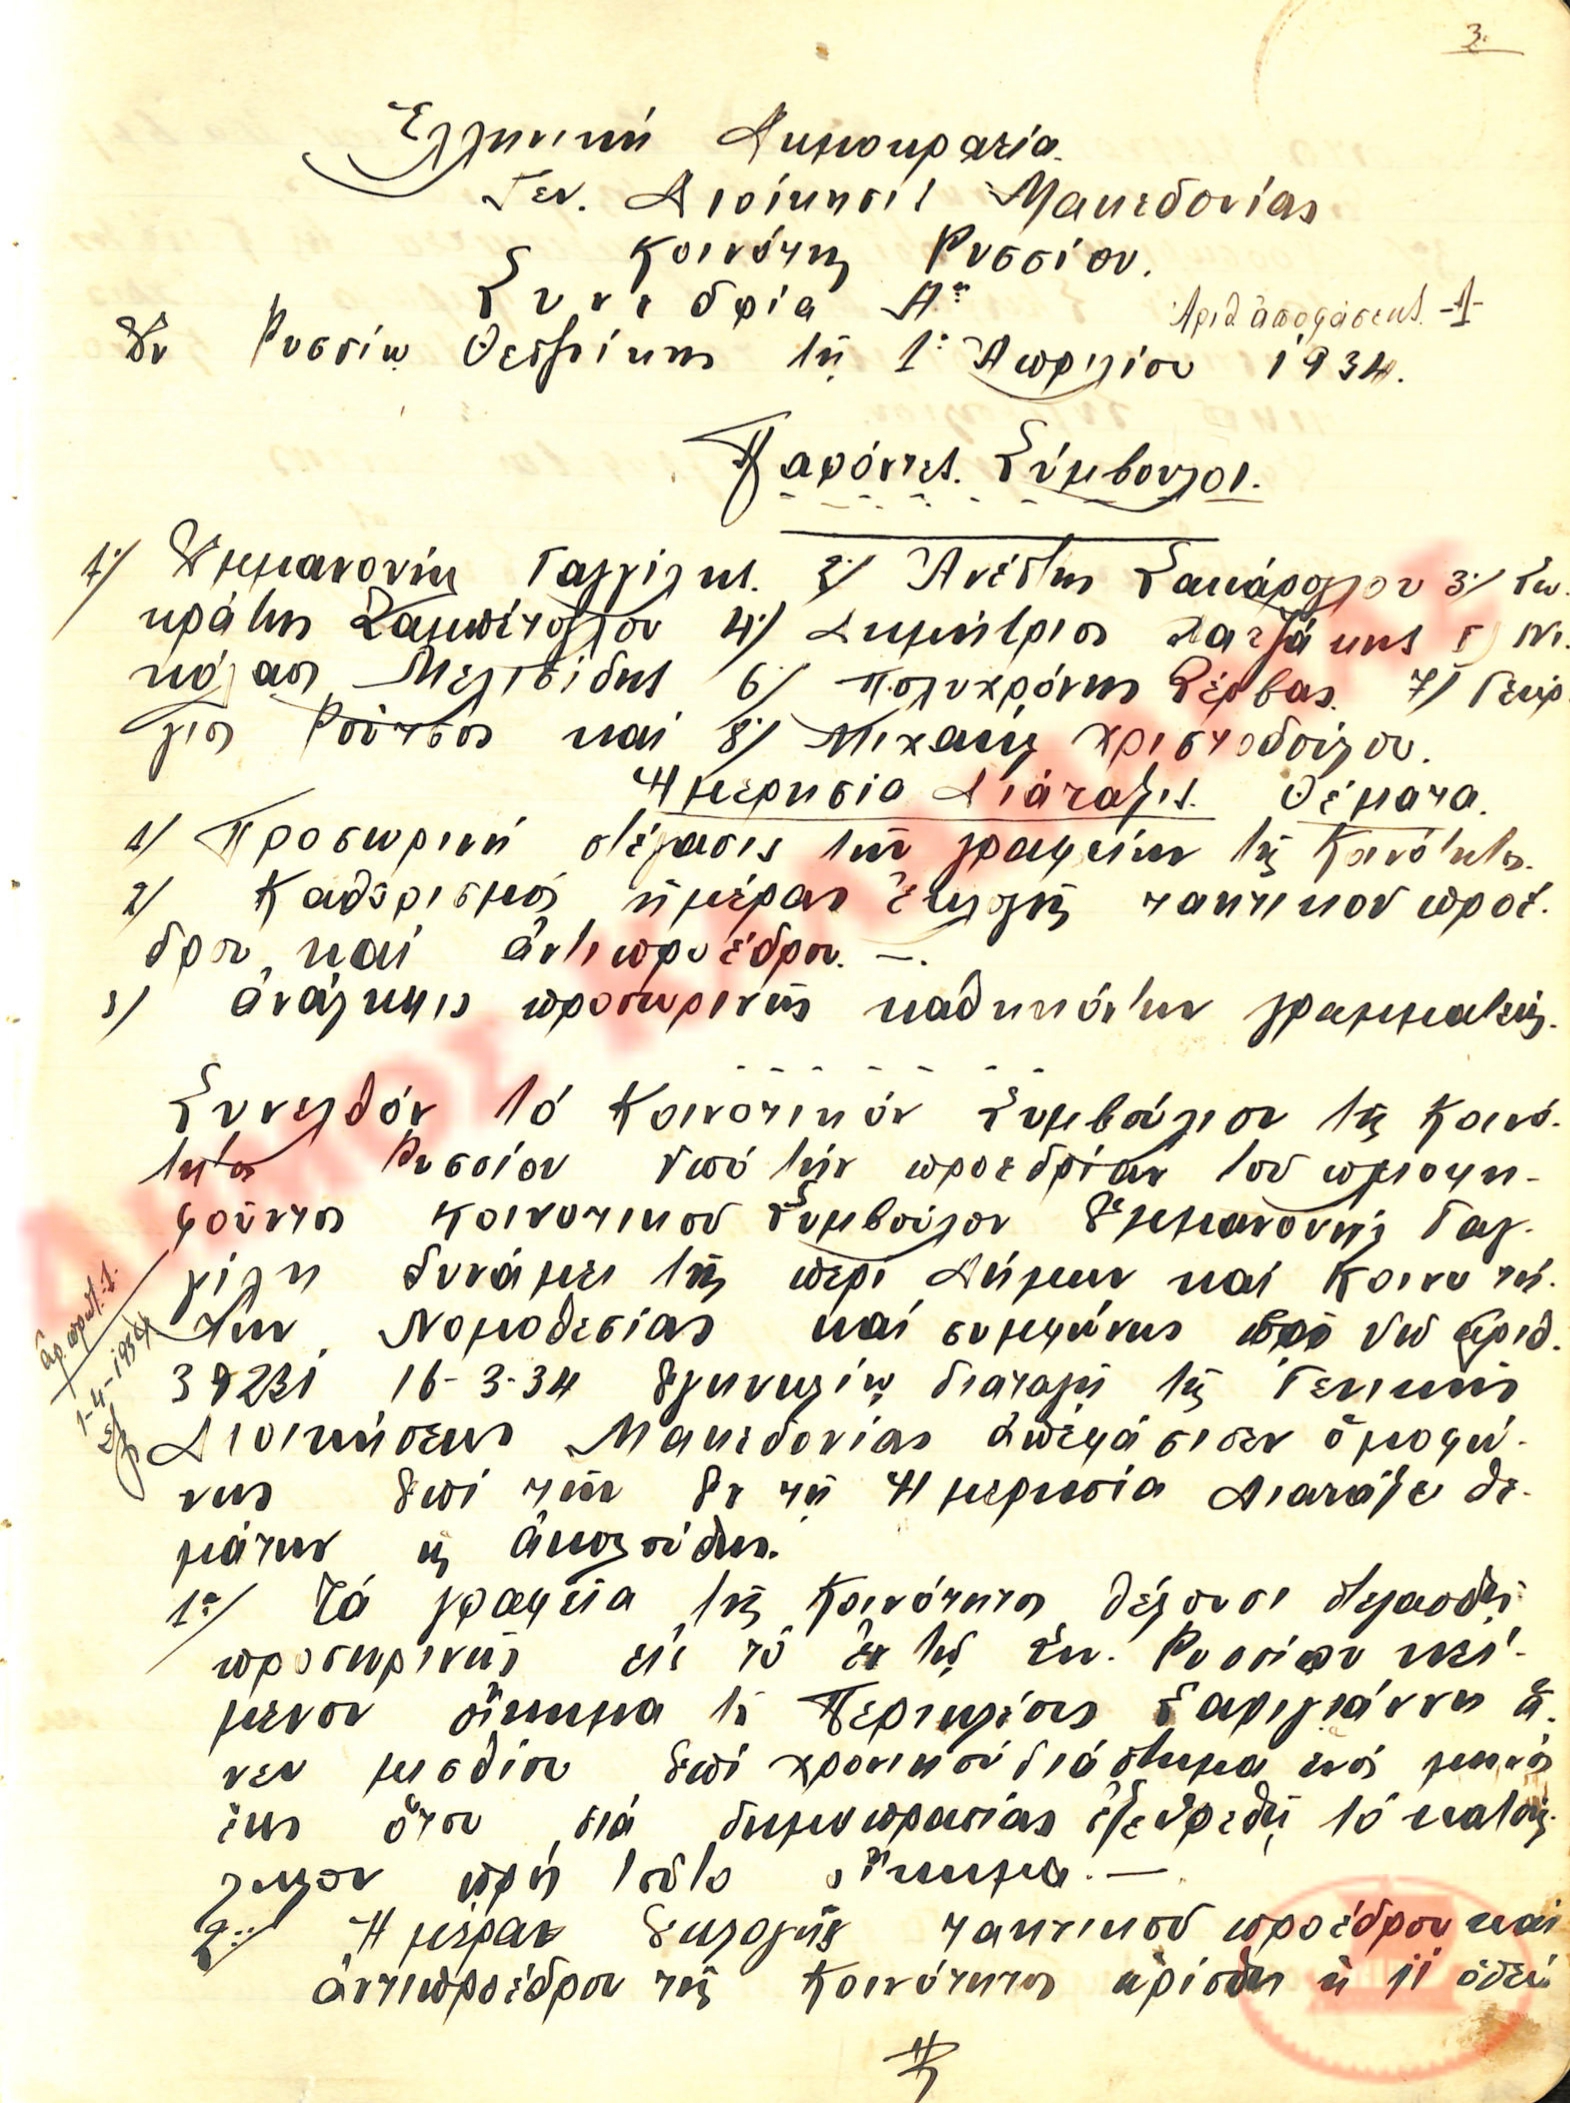 3.
Ἑλληνική Δημοκρατία.
Γεν. Διοίκησις Μακεδονίας
Κοινότης Ρυσσίου.
Συνεδρία Αη
Ἀριθ ἀποφάσεως. -1-
Ἐν Ρυσσίῳ Θεσ)νίκης τῇ 1ῃ Ἀπριλίου 1934.
Παρόντες. Σύμβουλοι.
1./ Ἐμμανουήλ Γαγγίλης. 2./ Ἀνέστης Σακάρογλου 3./ Σω-
κράτης Σαμπέτογλου 4./ Δημήτριος Χατζάκης 5) Νι-
κόλαος Μελισίδης 6/ Πολυχρόνης Σέρβας. 7/ Γεώρ-
γιος Ρούτσος καί 8/ Μιχαήλ Χριστοδούλου.
Ἡμερησία Διάταξις. Θέματα.
1/ Προσωρινή στέγασις τῶν γραφείων τῆς Κοινότητος.
2/ Καθορισμός ἡμέρας ἐκλογῆς τακτικοῦ προέ-
δρου καί ἀντιπροέδρου. —.
3/ ἀνάληψις προσωρινῶς καθηκόντων γραμματέως.
Συνελθόν τό Κοινοτικόν Συμβούλιον τῆς Κοινό-
τητος Ρυσσίου ὑπό τήν προεδρίαν τοῦ πλειοψη-
φοῦντος Κοινοτικοῦ Συμβούλου Ἐμμανουήλ Γαγ-
γίλη δυνάμει τῆς περί Δήμων καί Κοινοτή-
των Νομοθεσίας καί συμφώνως ὑπ ἀριθ.
39231 16-3-34 Ἐγκυκλίῳ διαταγῇ τῆς Γενικῆς
Διοικήσεως Μακεδονίας ἀπεφάσισεν ὁμοφώ-
νως ἐπί τῶν ἐν τῇ Ἡμερησίᾳ Διατάξει θε-
μάτων ὡς ἀκολούθως.
ἀρ. πρωτ. 1.
1-4-1934
1ον/ Τά γραφεῖα τῆς Κοινότητος θέλουσι στεγασθῇ
προσωρινῶς εἰς τό ἐν τῷ Συν. Ρυσσίου κεί-
μενον οἴκημα τοῦ Περικλέους Σαρηγιάννη ἄ-
νευ μισθίου ἐπί χρονικόν διάστημα ἑνός μηνός
ἕως ὅτου διά δημοπρασίας ἐξευρεθῇ τό κατάλ-
ληλον πρός τοῦτο οἴκημα. —
2ον/ Ἡμέραν ἐκλογῆς τακτικοῦ προέδρου καί
ἀντιπροέδρου τῆς Κοινότητος ὁρίσθη ἡ 11